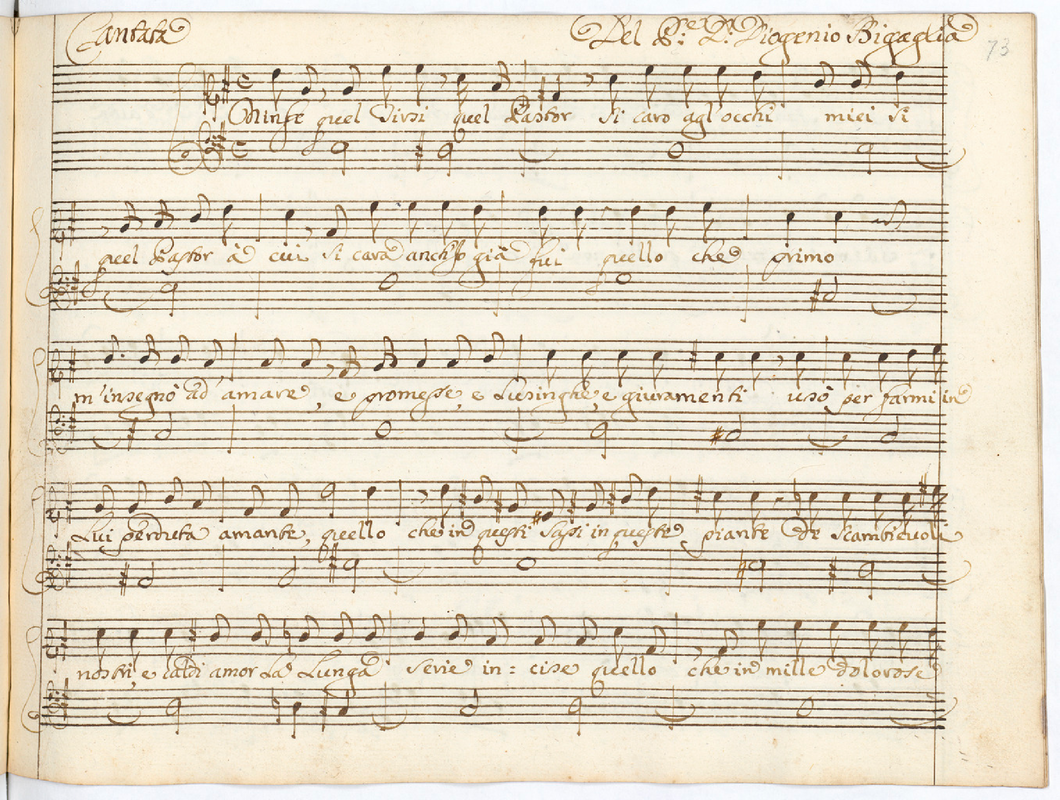 Cantata Del P: D: Diogenio Bigaglia
73
Ninfe quel Tirsi quel Pastor si caro agl'occhi miei si
quel Pastor à cui si cara anch'io già fui quello che primo
m'insegnò ad amare, e promesse, e Lusinghe, e giuramenti usò per farmi in
Lui perduta amante, quello che in questi sassi in queste piante de scambievoli
nostri, e caldi amor La Lunga serie in= cise quello che in mille dolorose